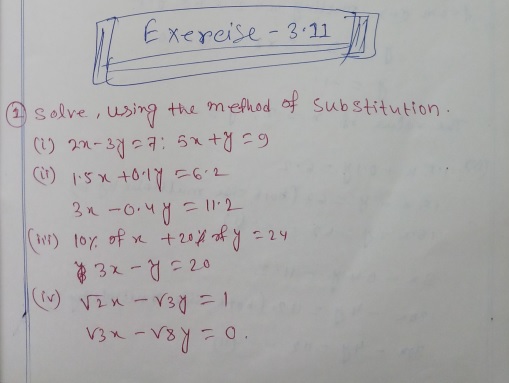 Exercise - 3.11
① Solve, using the method of substitution.
(i) 2x-3y=7; 5x+y=9
(ii) 1.5x+0.1y=6.2
3x-0.4y=11.2
(iii) 10% of x +20% of y =24
3x-y=20
(iv) √2x-√3y=1
√3x-√8y=0.